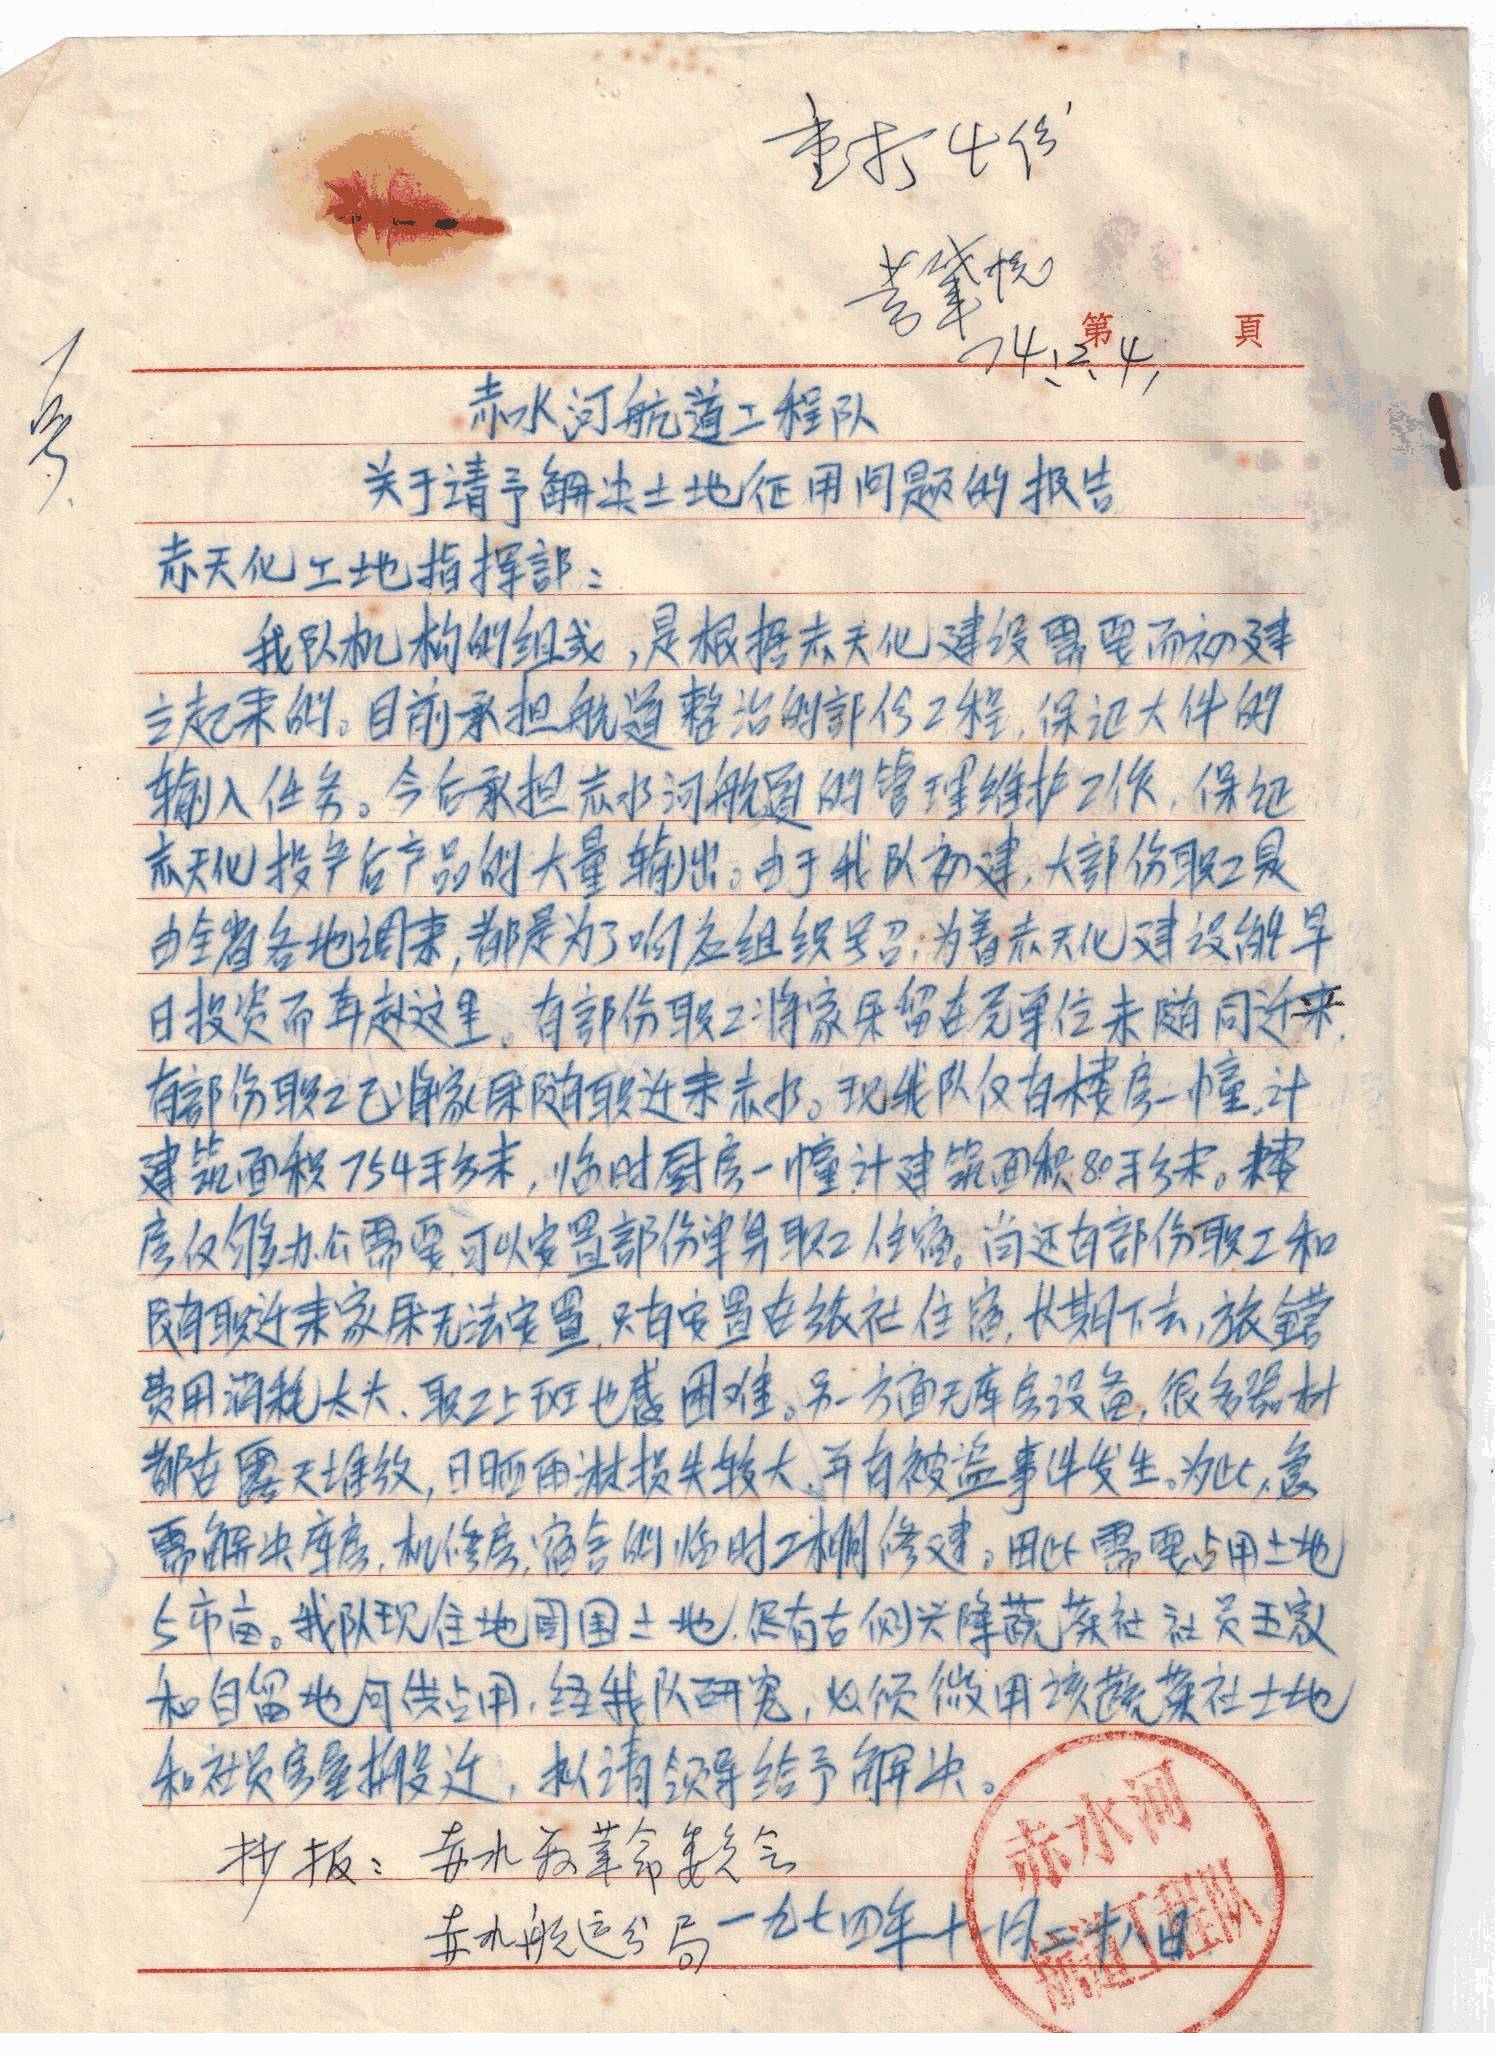 重打七份
74.12.4.
第 頁
赤水河航道工程队
关于请予解决土地征用问题的报告
赤天化工地指挥部：
我队机构的组成，是根据赤天化建设需要而初建
立起来的。目前承担航道整治的部份工程，保证大件的
输入任务。今后承担赤水河航道的管理维护工作，保证
赤天化投产后产品的大量输出。由于我队初建，大部份职工是
由全省各地调来，都是为了响应组织号召，为着赤天化建设能早
日投资而奔赴这里。有部份职工将家属留在元单位未随同迁来，
有部份职工已将家属随职迁来赤水。现我队仅有楼房一幢，计
建筑面积754平方米，临时厨房一幢计建筑面积80平方米。楼
房仅够办公需要，可以安置部份单身职工住宿。尚还有部份职工和
随职迁来家属无法安置，只有安置在旅社住宿，长期下去，旅馆
费用消耗太大、职工上班也感困难。另一方面无库房设备，很多器材
都在露天堆放，日晒雨淋损失较大，并有被盗事件发生。为此，急
需解决库房，机修房，宿舍的临时工棚修建。因此需要占用土地
5市亩。我队现住地周围土地，仅有右侧兴隆蔬菜社社员五家
和自留地可供占用，经我队研究，必须征用该蔬菜社土地
和社员房屋搬迁，拟请领导给予解决。
抄报：赤水县革命委员会
赤水航运分局 一九七四年十一月二十八日
赤水河
航道工程队